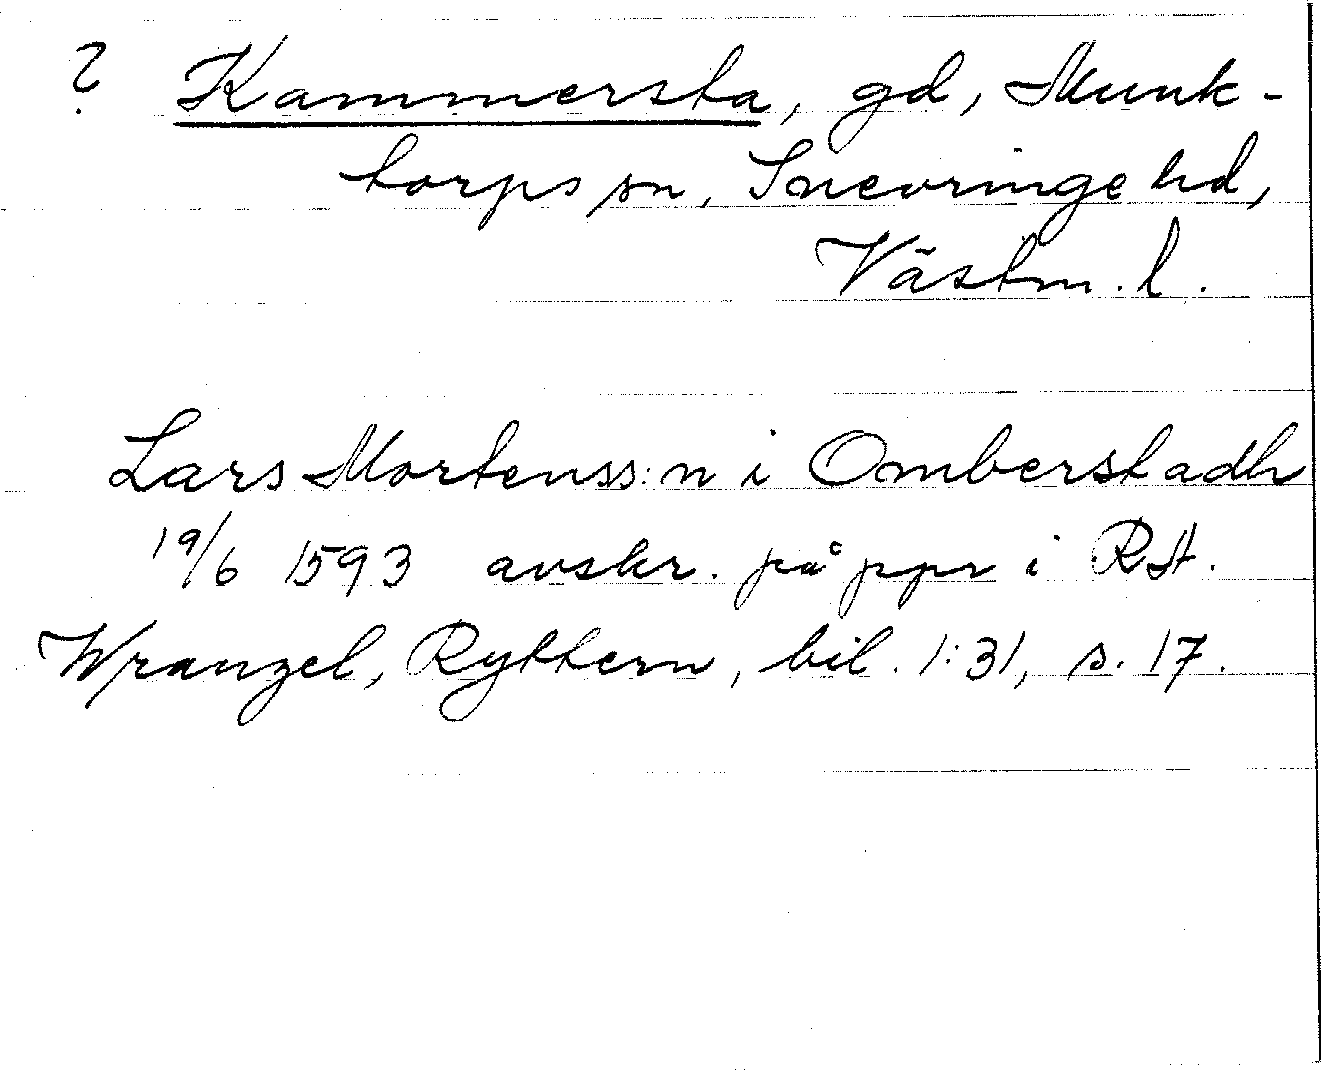 ? Kammersta, gd, Munk-
torps sn, Snevringe hd,
Västm. l.
Lars Mortenss:n i Omberstadh
19/6 1593 avskr. på ppr i RA.
Wranzel, Ryttern, bil. 1:31, s. 17.